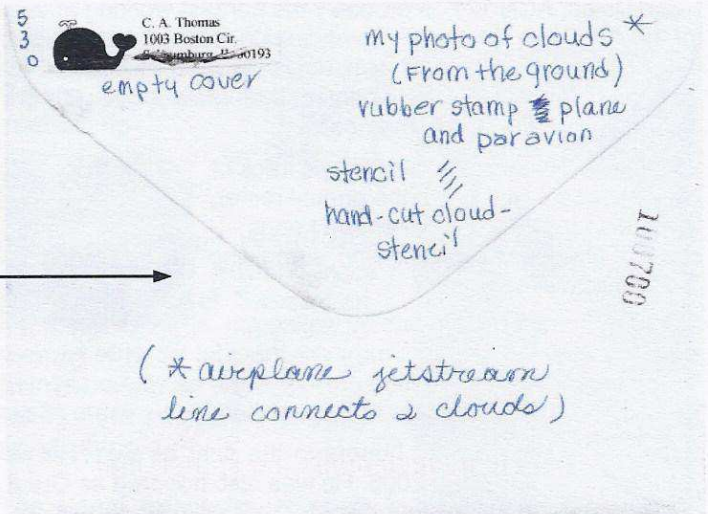 5
3
0
C. A. Thomas
1003 Boston Cir.
empty cover
my photo of clouds *
(From the ground)
rubber stamp plane
and par avion
stencil
hand-cut cloud-
stencil
100700
(* airplane jetstream
line connects 2 clouds)